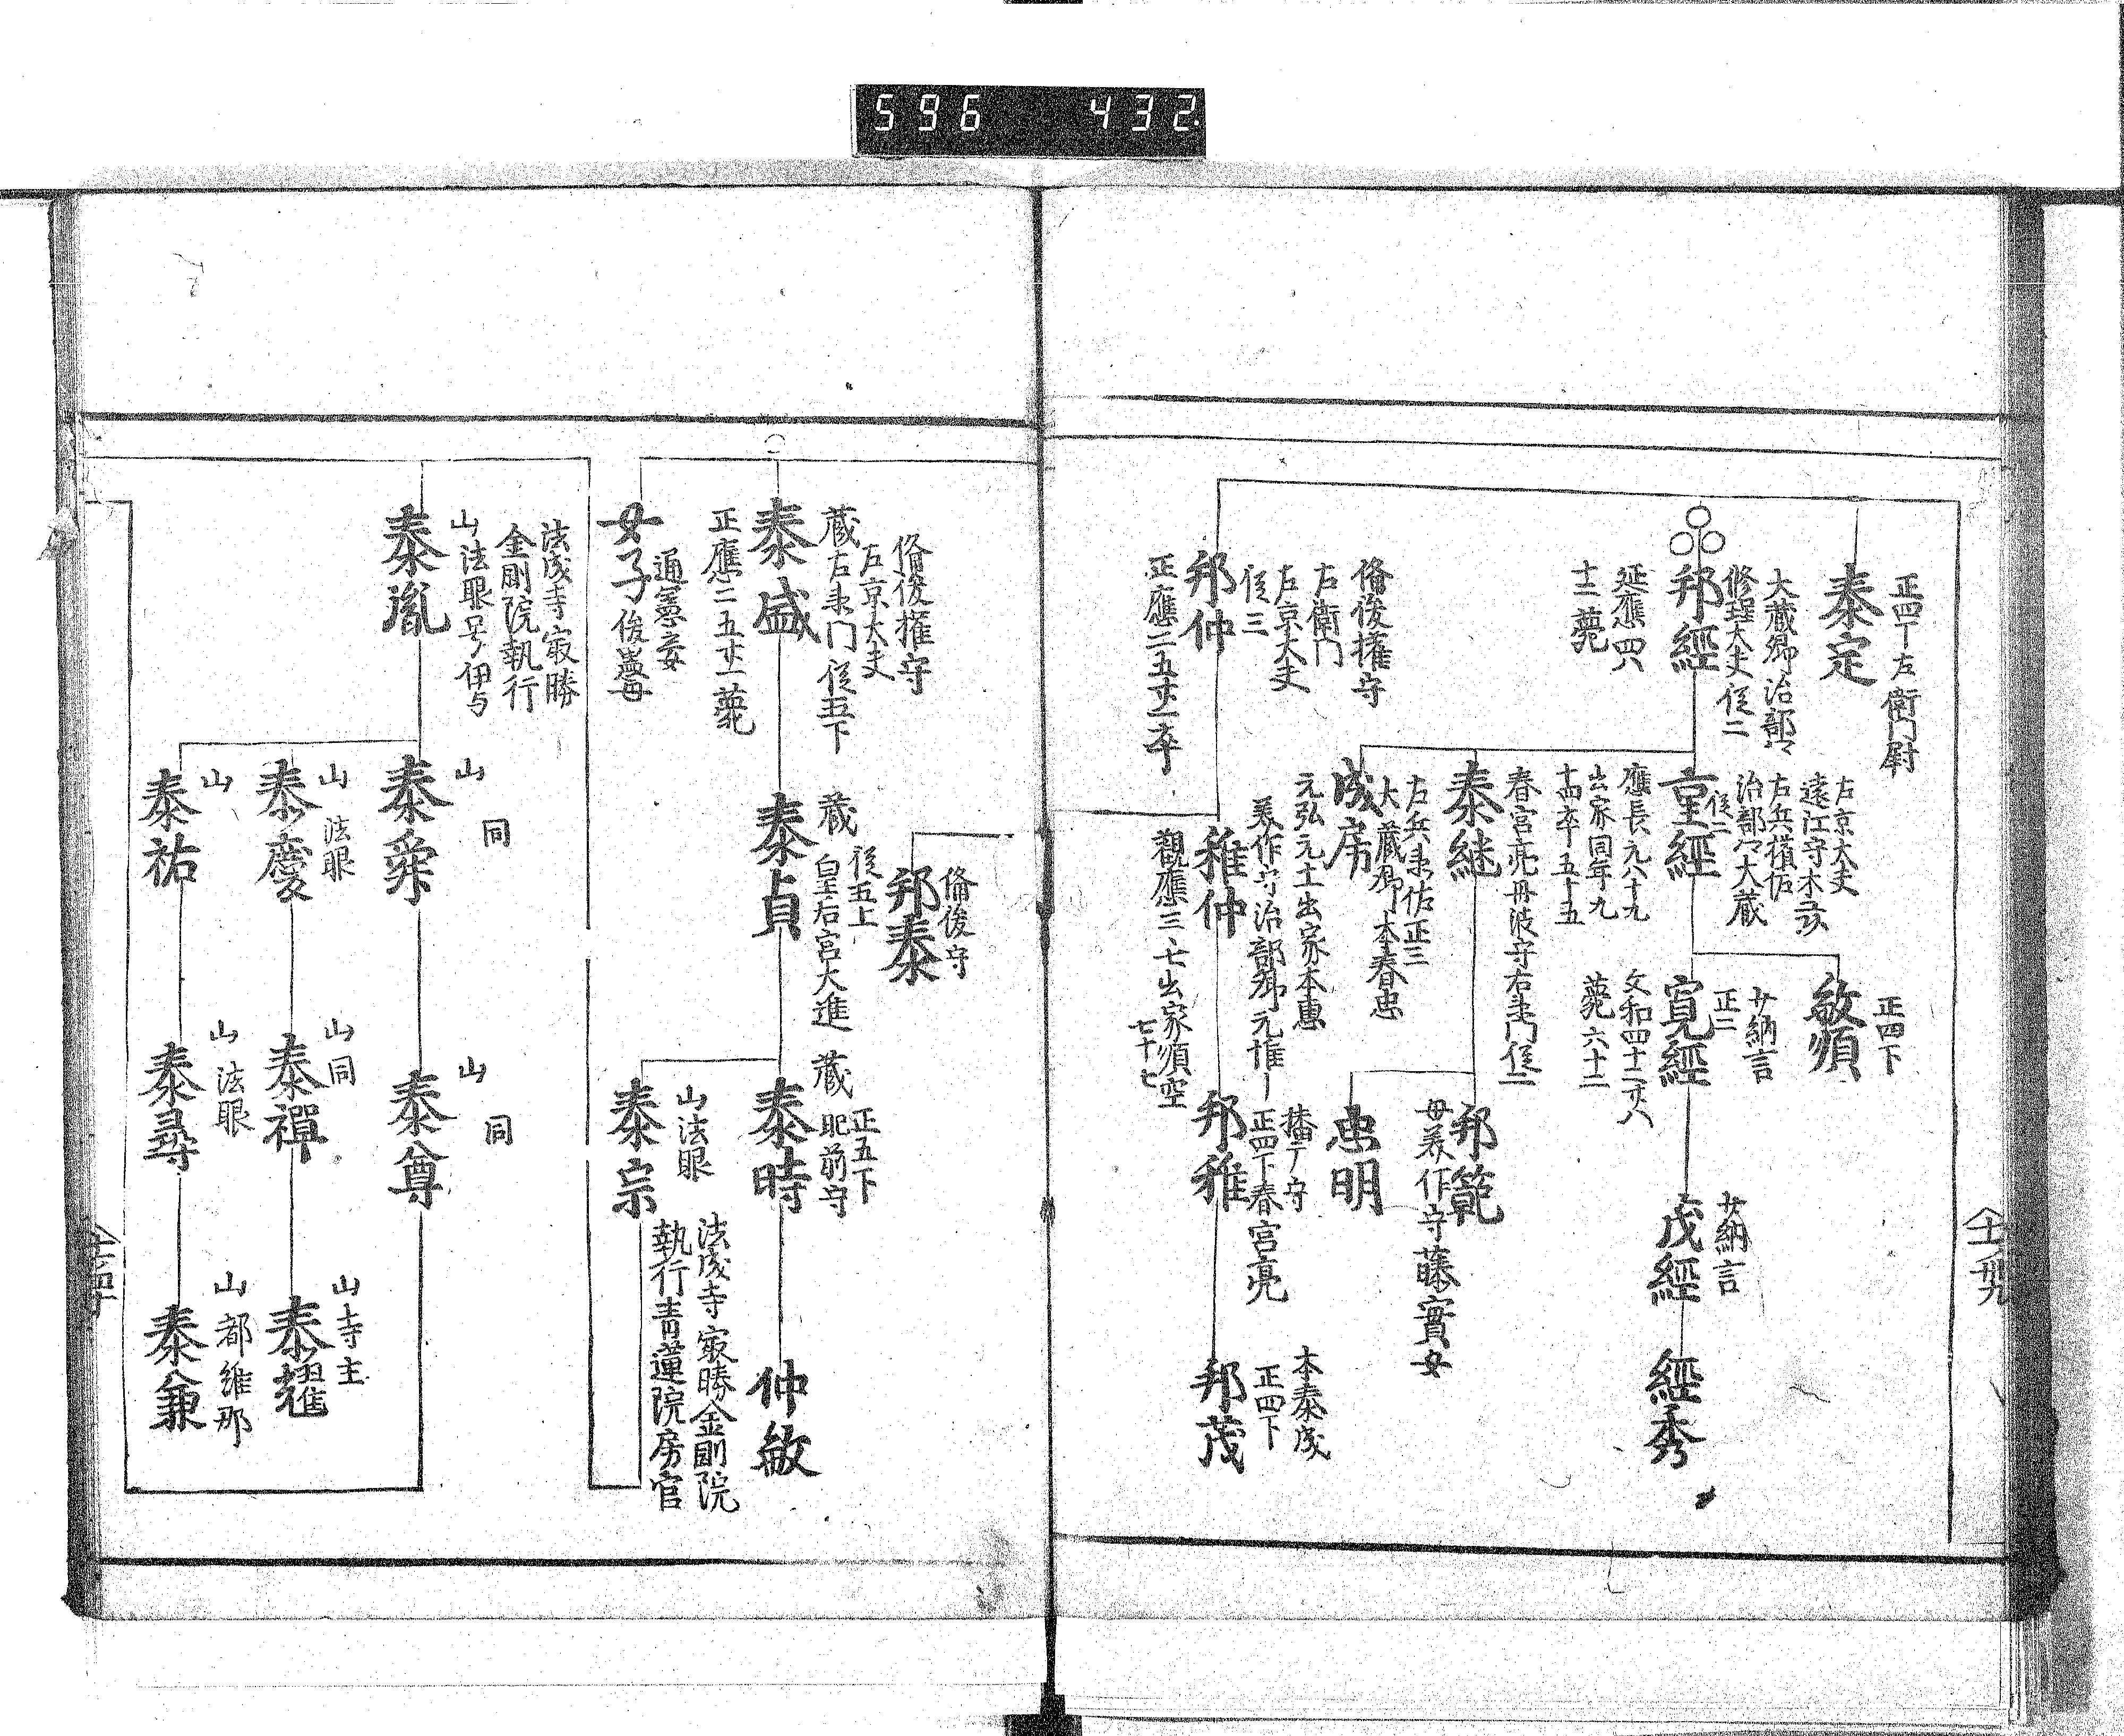 596 432
正四下左衛門尉
泰定
大蔵卿治部々
修理大夫従二
邦經
延應四八
十二薨
左京大夫
遠江守木工
左兵權佐
治部々大蔵
従二
重經
應長元八十九
出家同年九
十四卒五十五
正四下
敏頌
少納言
正二
寛經
文和四十二廿八
薨六十二
少納言
茂經
經秀
春宮亮丹波守右衛門従二
泰継
邦範
母美作守藤實女
左兵衛佐正三
大蔵卿本春忠
成房
元弘元十出家本惠
忠明
備後權守
右衛門
左京大夫
従三
邦仲
正應二五廿二卒
美作守治部卿元惟一
雅仲
觀應三七出家頌空
七十七
播ア守
正四下春宮亮
邦雅
本泰成
正四下
邦茂
備後守
邦泰
備後權守
左京大夫
蔵右衛門従五下
泰盛
正應二五廿一薨
蔵 従五上
皇后宮大進
泰貞
蔵 正五下
肥前守
泰時
仲敏
山法眼
泰宗
法成寺寂勝金剛院
執行青蓮院房官
通憲妾
女子
俊憲母
法成寺寂勝
金剛院執行
山法眼号伊与
泰胤
山 同
泰舜
山 同
泰尊
山 法眼
泰慶
山同
泰禪
山寺主
泰耀
山
泰祐
山 法眼
泰尋
山都維那
泰兼